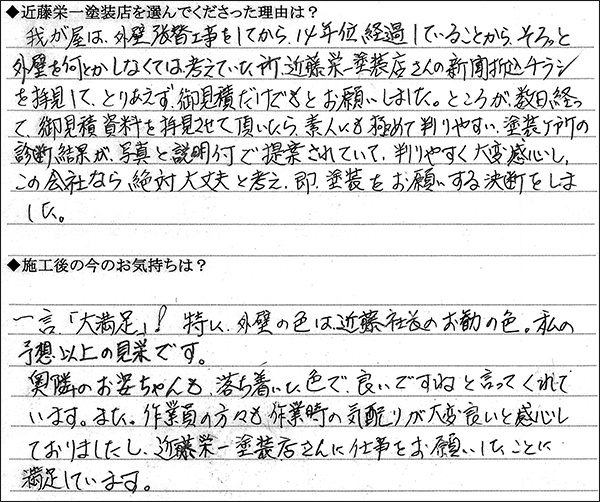 ◆近藤栄一塗装店を選んでくださった理由は？
我が屋は、外壁張替工事をしてから、14年位、経過していることから、そろっと
外壁を何とかしなくては、考えていた所、近藤栄一塗装店さんの新聞折込チラシ
を拝見して、とりあえず、御見積だけでもとお願いしました。ところが、数日経っ
て、御見積資料を拝見させて頂いたら、素人にも極めて判りやすい、塗装ヶ所の
診断、結果が、写真と説明付で提案されていて、判りやすく大変感心し、
この会社なら、絶対大丈夫と考え、即、塗装をお願いする決断をしま
した。
◆施工後の今のお気持ちは？
一言、「大満足」！特に、外壁の色は、近藤社長のお勧の色。私の
予想以上の見栄です。
奥隣のお婆ちゃんも、落ち着いた色で、良いですねと言ってくれて
います。また、作業員の方々も、作業時の気配りが大変良いと感心し
ておりましたし、近藤栄一塗装店さんに仕事をお願いしたことに
満足しています。